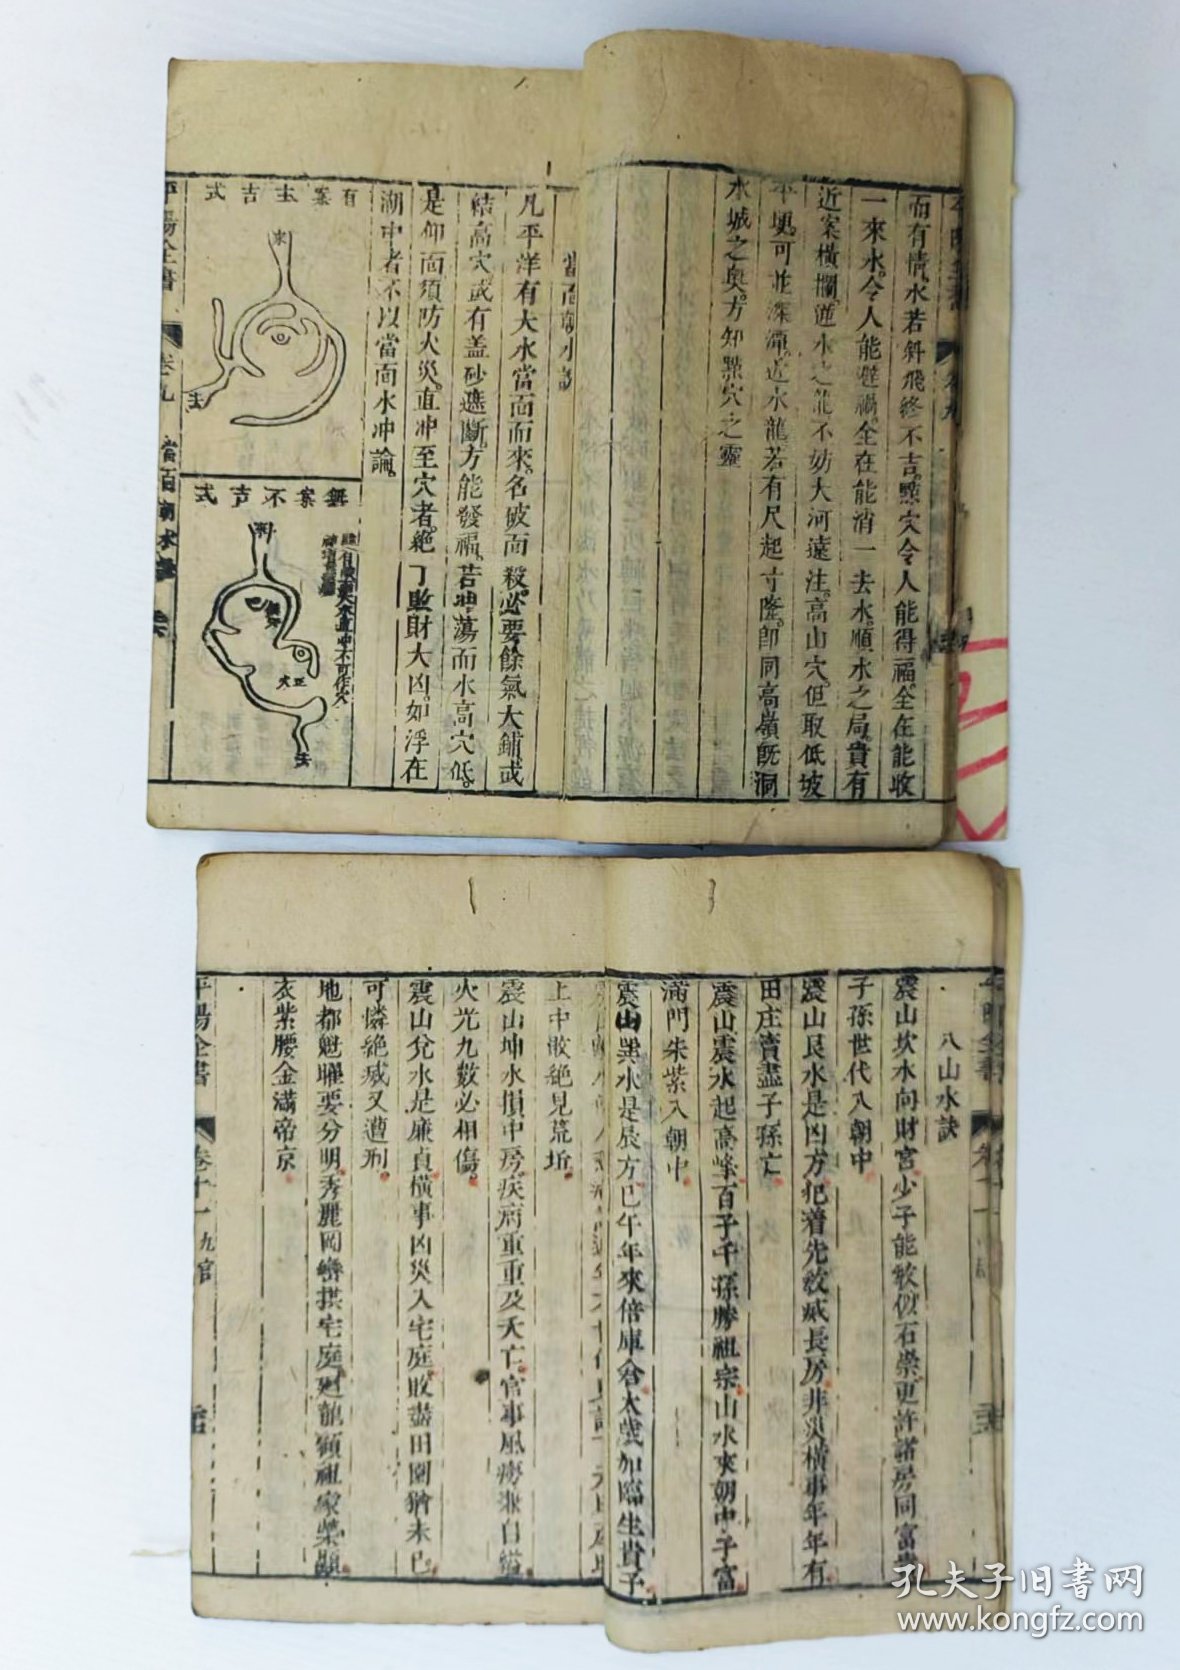 而有情。水若斜飛終不吉。點穴令人能得福。全在能收
一來水。令人能避禍。全在能消一去水。順水之局。貴有
近案橫攔。逆水之龍不妨大河遠注。高山穴。但取低坡
可並深潭。近水龍。若有尺起寸隆。即同高嶺既洞
水城之奧。方知點穴之靈
當面朝水說
凡平洋有大水當面而來。名破面殺。必要餘氣大鋪。或
結高穴。或有盖砂遮斷。方能發福。若坦蕩而水高穴低。
是仰面。須防火災。直冲至穴者。絶丁敗財大凶。如浮在
湖中者。不以當面水冲論。
有案主吉式
來
去
無案不吉式
來
正穴
去
平陽全書
卷九
當面朝水
八山水訣
震山坎水向財宮。少子能教似石崇。更許諸房同富貴
子孫世代入朝中
震山艮水是凶方。犯着先教烕長房。井災橫事年年有
田庄賣盡子孫亡
震山震水起高峰。百子千孫勝祖宗。山水來朝中子富
滿門朱紫入朝中
震山巽水是辰方。巳午年來倍庫倉。太歲加臨生貴子
上中敗絶見荒坵
震山坤水損中房。疾病重重及夭亡。官事風癆并自縊
火光九數必相傷。
震山兌水是廉貞。橫事凶災入宅庭。敗盡田園猶未已
可憐絶烕又遭刑。
地都魁曜要分明。秀麗岡巒拱宅庭。廻龍顧祖家榮顯
衣紫腰金滿帝京
平陽全書
卷十一
九宮
孔夫子旧书网
www.kongfz.com